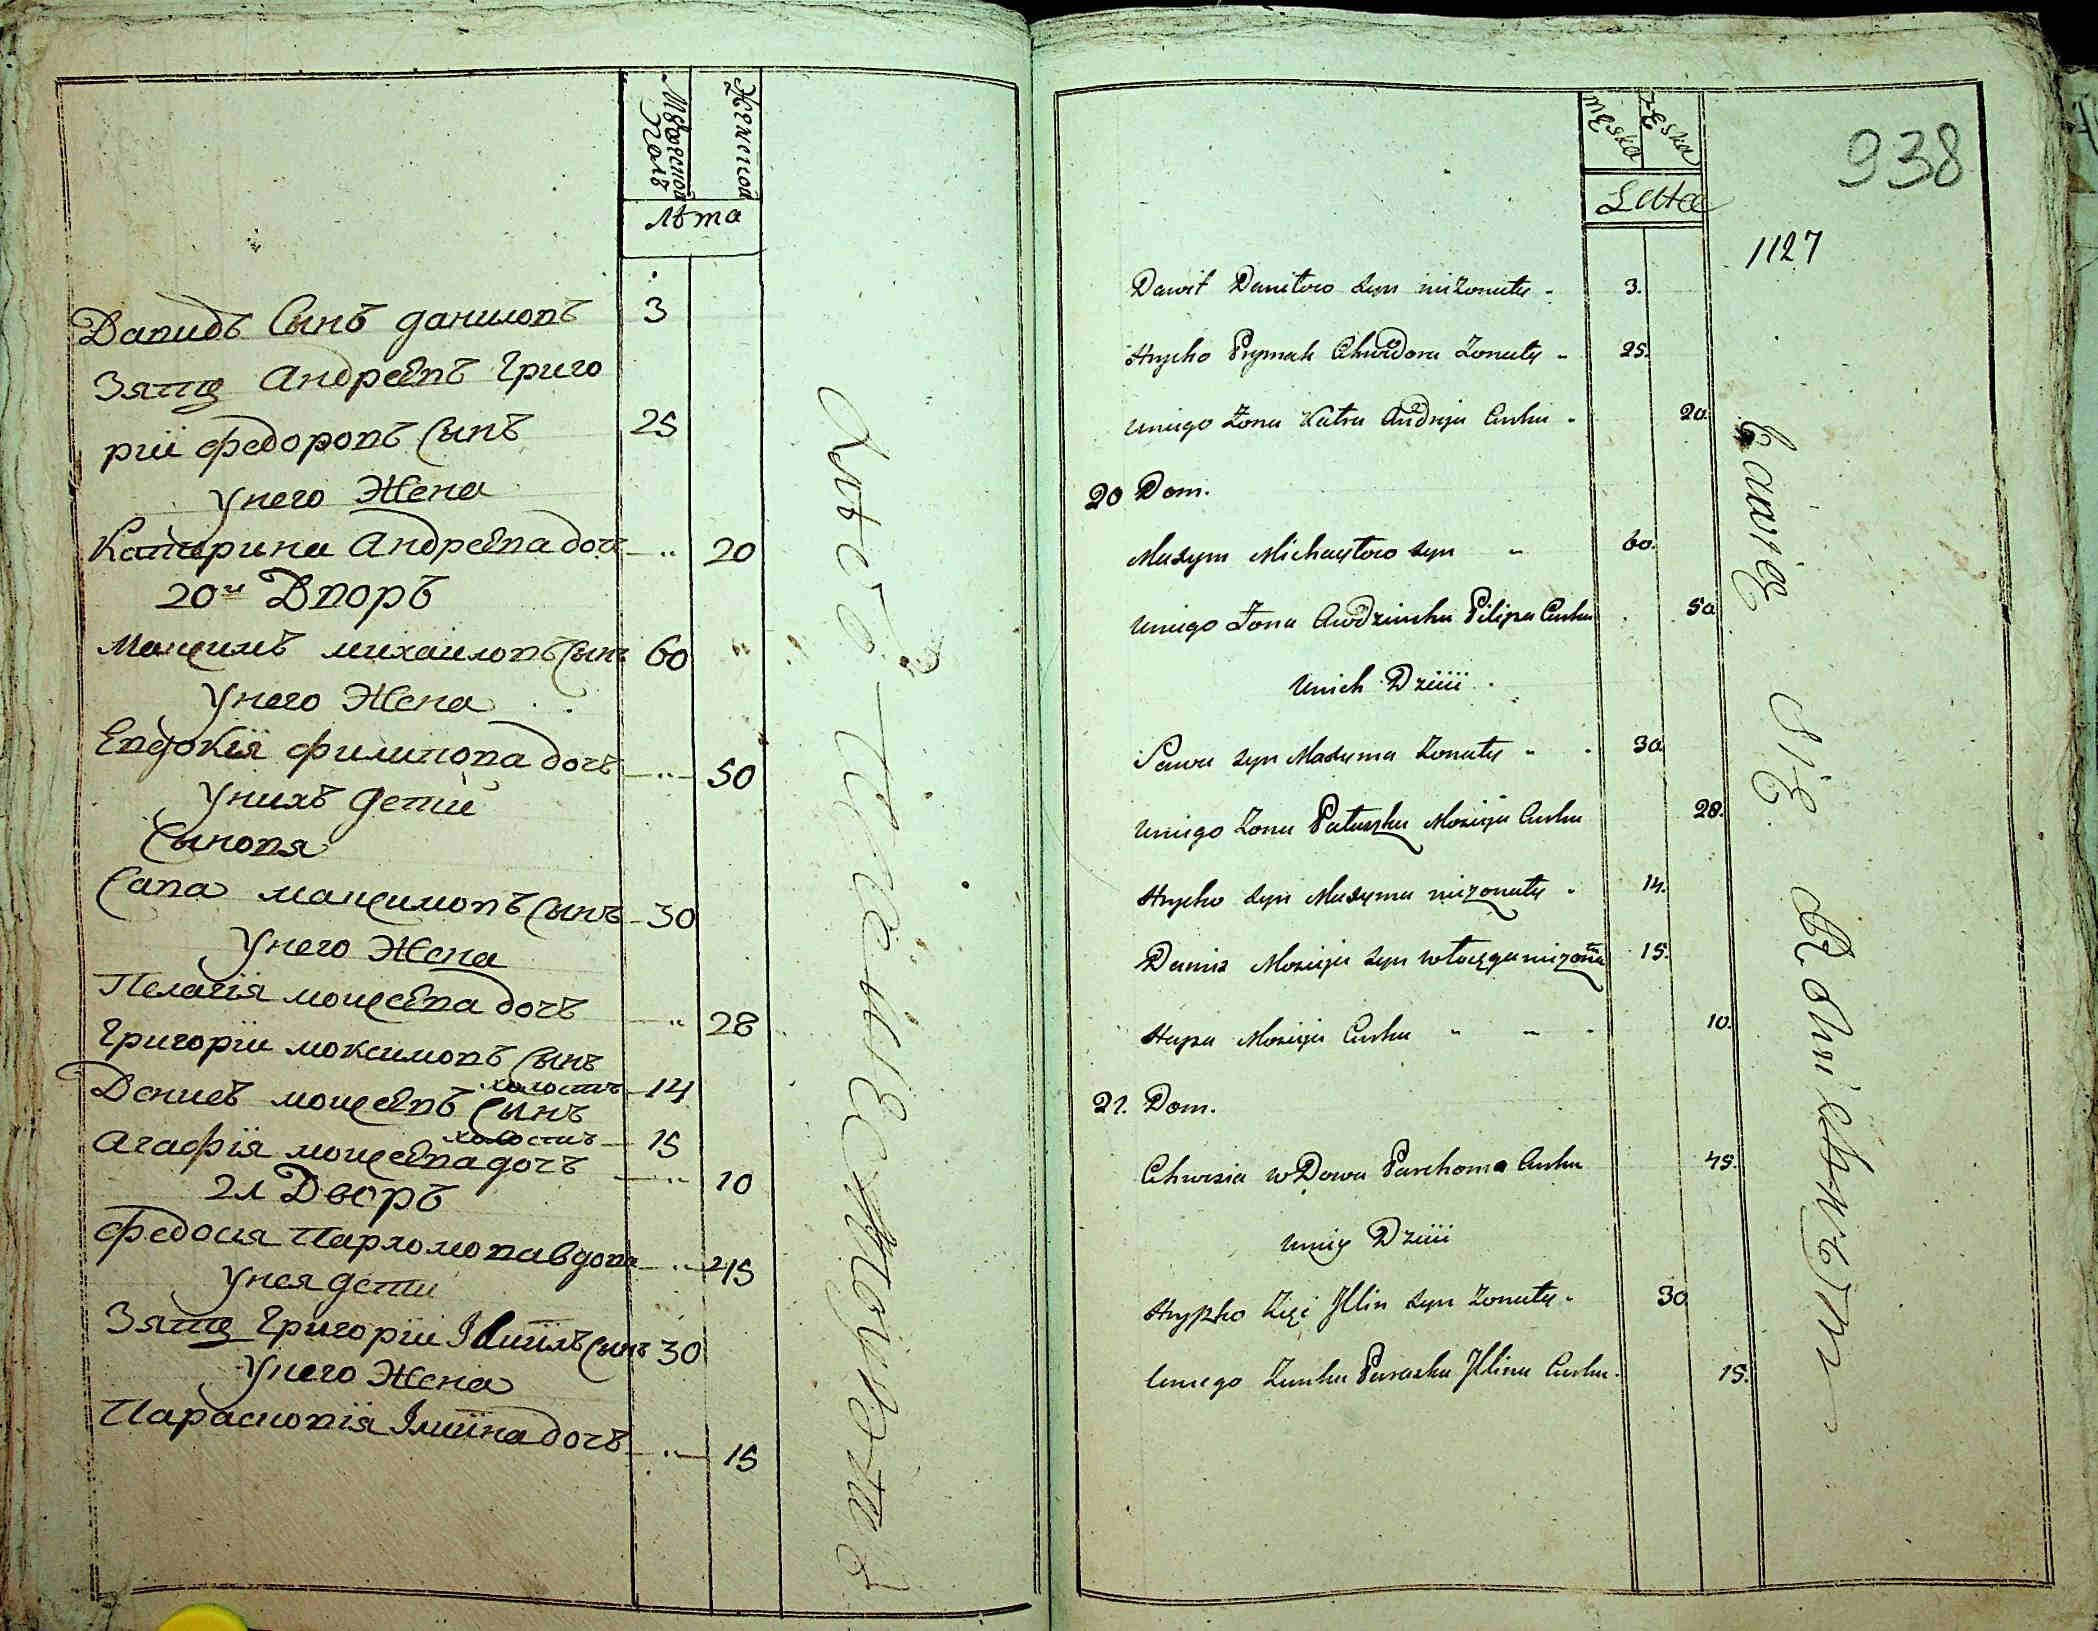 Мужской Полъ
Женской
Лѣта
Давидъ Сынъ даниловъ 3
Зять Андреевъ Григо
рій федоровъ Сынъ 25
У него Жена
Катерина Андреева дочь - " 20
20й Дворъ
Максимъ михаиловъ Сынъ 60 "
У него Жена
Евдокія филипова дочь - " - 50
У нихъ дети
Сыновя
Сава максимовъ Сынъ - 30
У него Жена
Пелагія мойсеева дочь - " 28
Григоріи максимовъ Сынъ
холостъ - 14
Денисъ мойсеевъ Сынъ
холостъ - 15
Агафія мойсеева дочь - " 10
21 Дворъ
федосія Пархомова вдова - " - 45
У нея дети
Зять Григоріи Ілиинъ Сынъ 30
У него Жена
Парасковія Ілиина дочь - " - 15
męska
żęska
Lata
938
1127
Dawid Daniłow syn niżonaty - 3.
Hryćko Prymak Chwedora żonaty - 25.
U niego żona Katra Andreja Curka - 20.
20 Dom.
Maxym Michayłow syn " 60.
U niego Żona Awdziuchu Pilipa Curka 50
U nich Dzieci
Sawa syn Maxyma żonaty - 30
U niego żona Pałaszka Mosieja Curka 28.
Hryćko syn Maxyma niżonaty - 14.
Denis Mosieja syn włuczęga niżonaty 15.
Hapa Mosieja Curka " - - 10.
21. Dom.
Chwesia wdowa Parchoma Curka 45.
U niey Dzieci
Hryćko Zięć Illin syn żonaty - 30
U niego Żonka Paraska Illina Curka. 15.